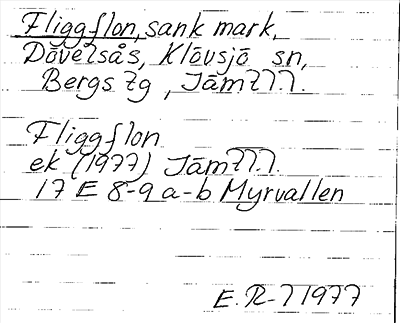 Fliggflon, sank mark,
Dövelsås, Klövsjö sn,
Bergs tg, Jämtl.
Fliggflon
ek (1977) Jämtl.
17 E 8-9 a-b Myrvallen
E. R-7 1977